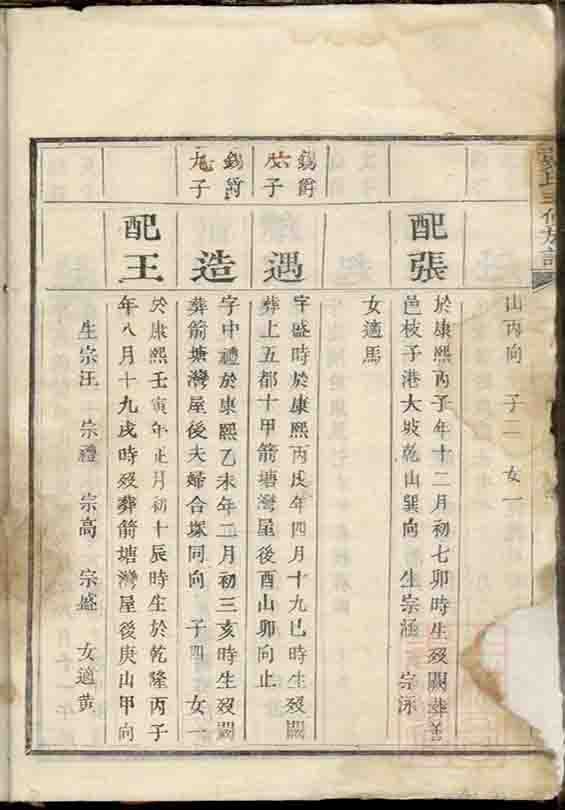 氏三修族譜
山丙向 子二 女一
配張
於康熙丙子年十二月初七卯時生歿闕葬善
邑枝子港大坡乾山巽向 生宗涵 宗泳
女適馬
錫爵
六子
遇
字盛時於康熙丙戌年四月十九巳時生歿闕
葬上五都十甲箭塘灣屋後酉山卯向止
錫爵
九子
造
字中禮於康熙乙未年二月初三亥時生歿闕
葬箭塘灣屋後夫婦合塚同向 子四 女一
配王
於康熙壬寅年正月初十辰時生於乾隆丙子
年八月十九戌時歿葬箭塘灣屋後庚山甲向
生宗汪 宗禮 宗高 宗盛 女適黃